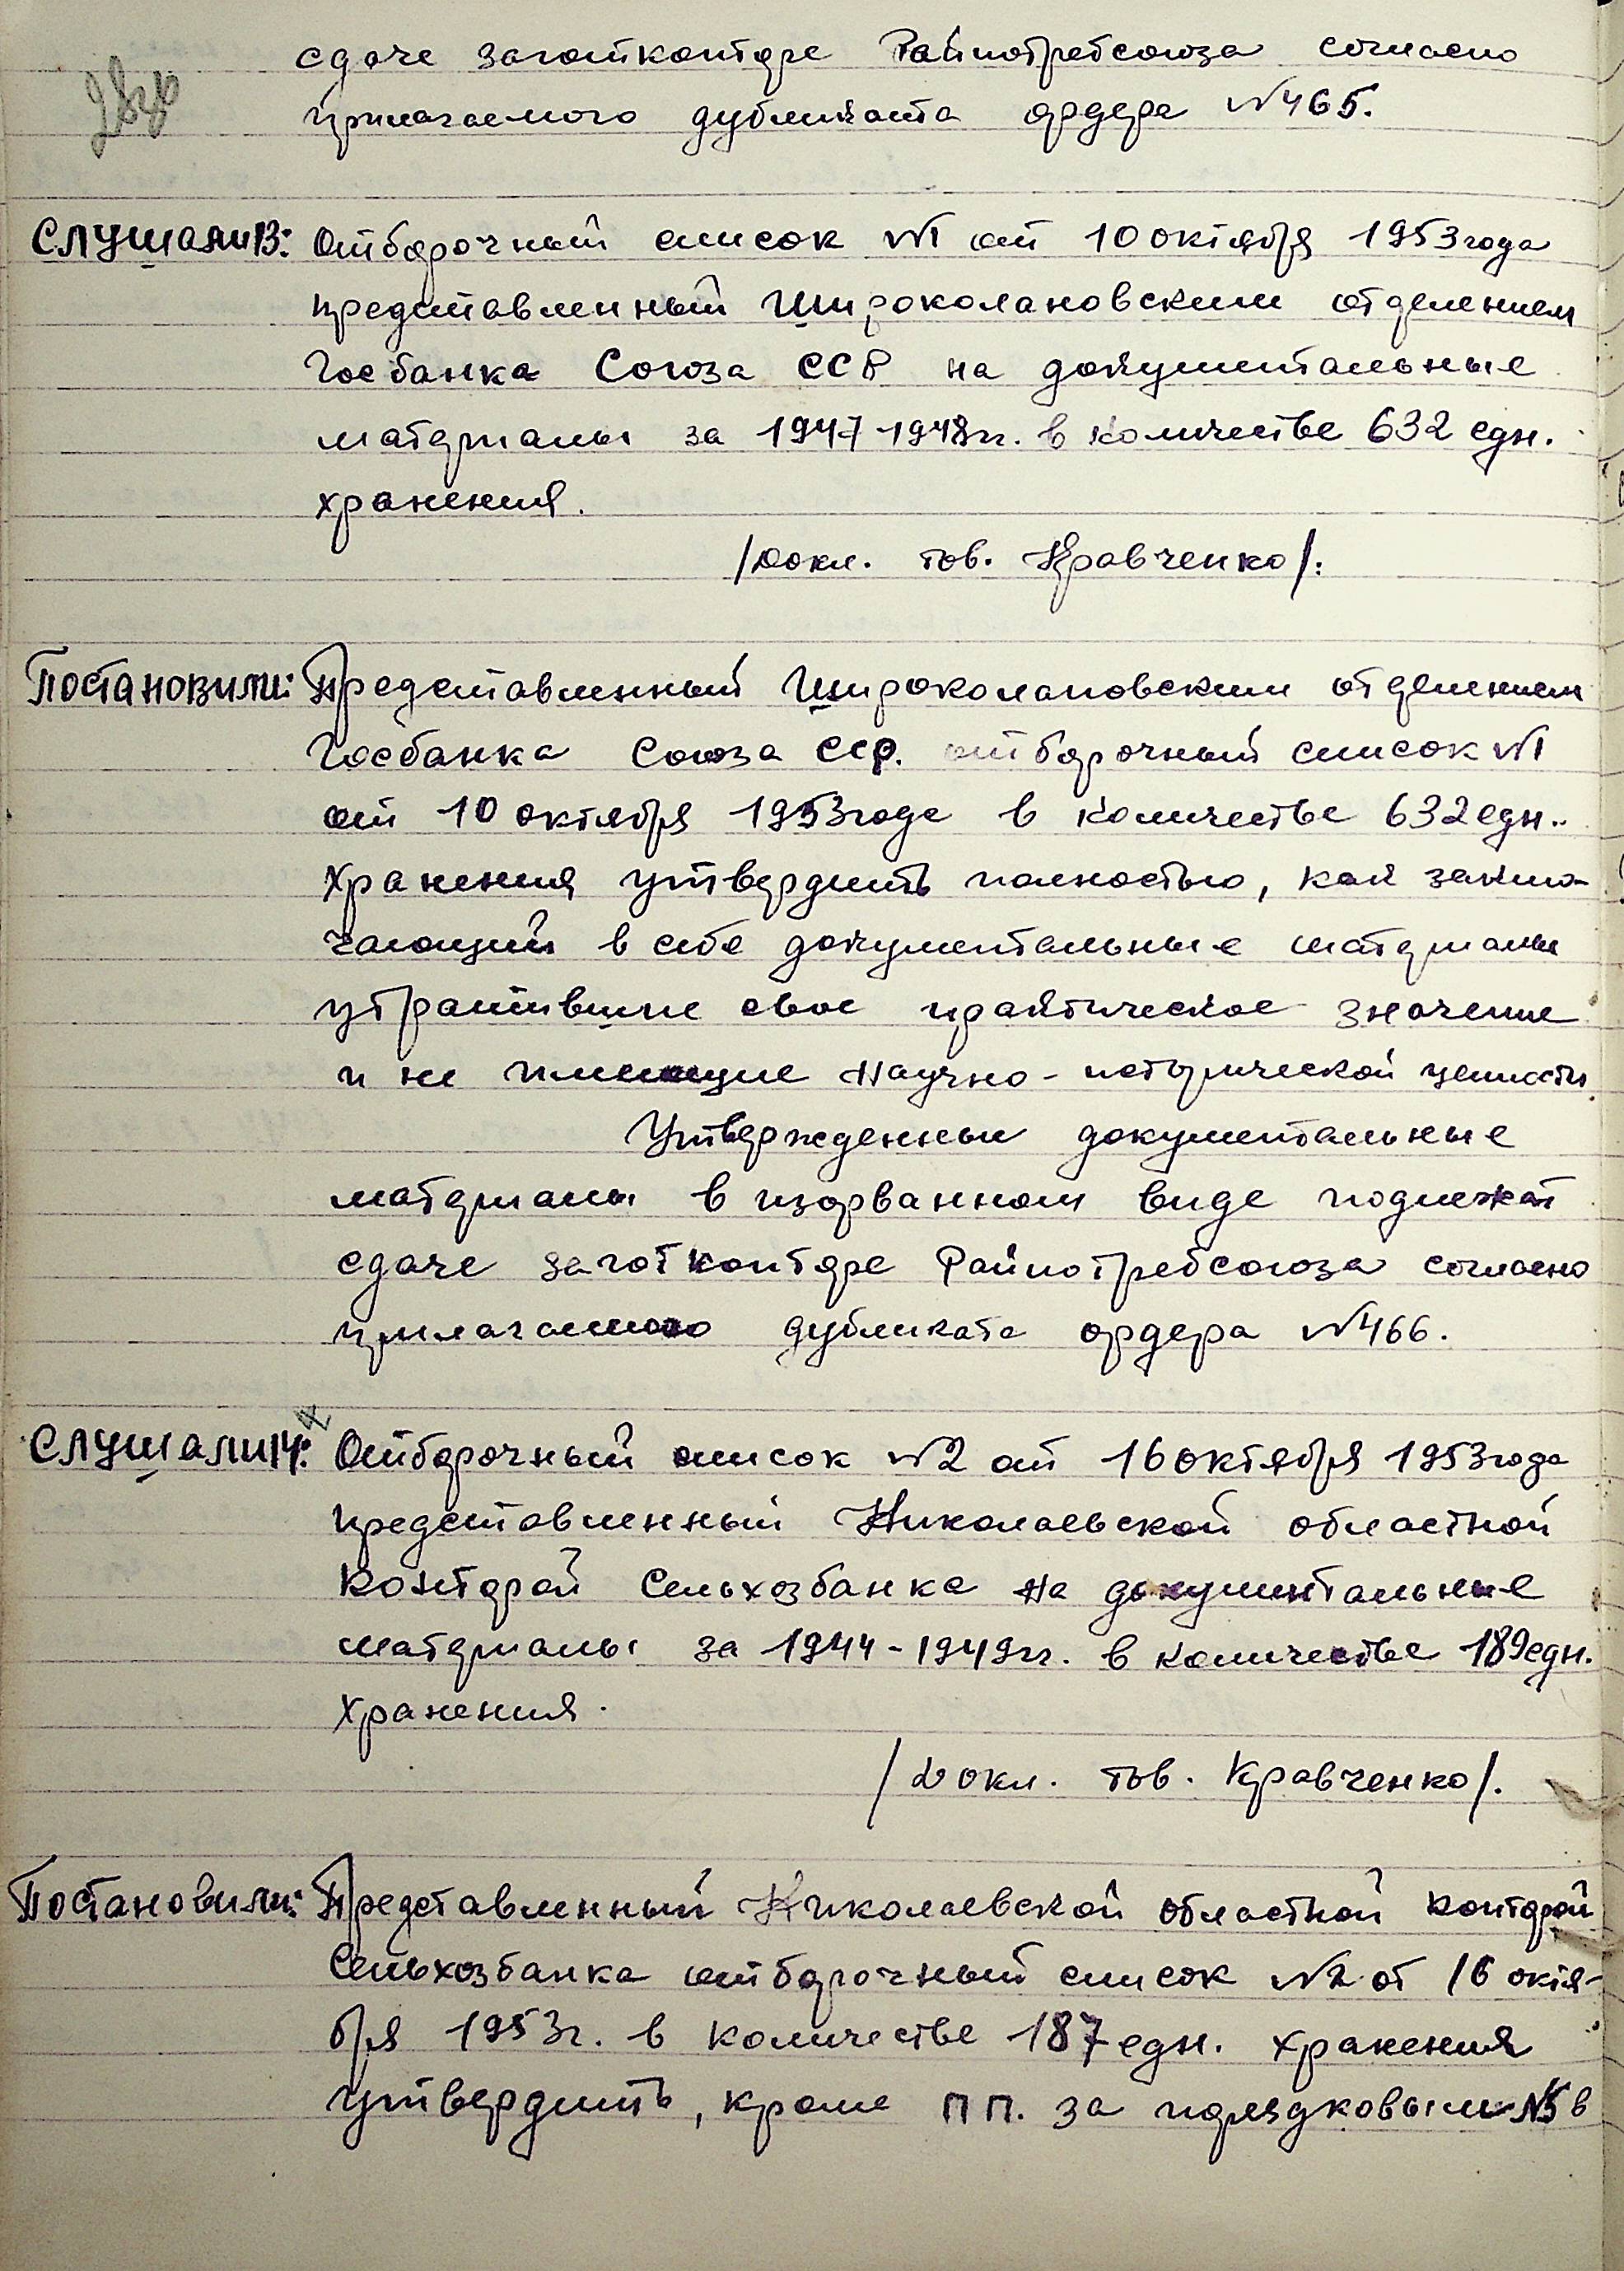 сдаче заготконторе Райпотребсоюза согласно
прилагаемого дубликата ордера №465.
Слушали 13: Отборочный список №1 от 10 октября 1953 года
представленный Широколановским отделением
Госбанка Союза ССР на документальные
материалы за 1947-1948 гг. в количестве 632 едн.
хранения.
/Докл. тов. Кравченко/.
Постановили: Представленный Широколановским отделением
Госбанка Союза ССР. отборочный список №1
от 10 октября 1953 года в количестве 632 едн..
хранения утвердить полностью, как заклю-
чающий в себе документальные материалы
утратившие свое практическое значение
и не имеющие научно-исторической ценности.
Утвержденные документальные
материалы в изорванном виде подлежат
сдаче заготконторе Райпотребсоюза согласно
прилагаемого дубликата ордера №466.
Слушали 14: Отборочный список №2 от 16 октября 1953 года
представленный Николаевской областной
конторой Сельхозбанка на документальные
материалы за 1944-1949 гг. в количестве 189 едн.
хранения.
/Докл. тов. Кравченко/.
Постановили: Представленный Николаевской областной конторой
Сельхозбанка отборочный список №2 от 16 октя-
бря 1953 г. в количестве 187 едн. хранения
утвердить, кроме пп. за порядковым №5 в